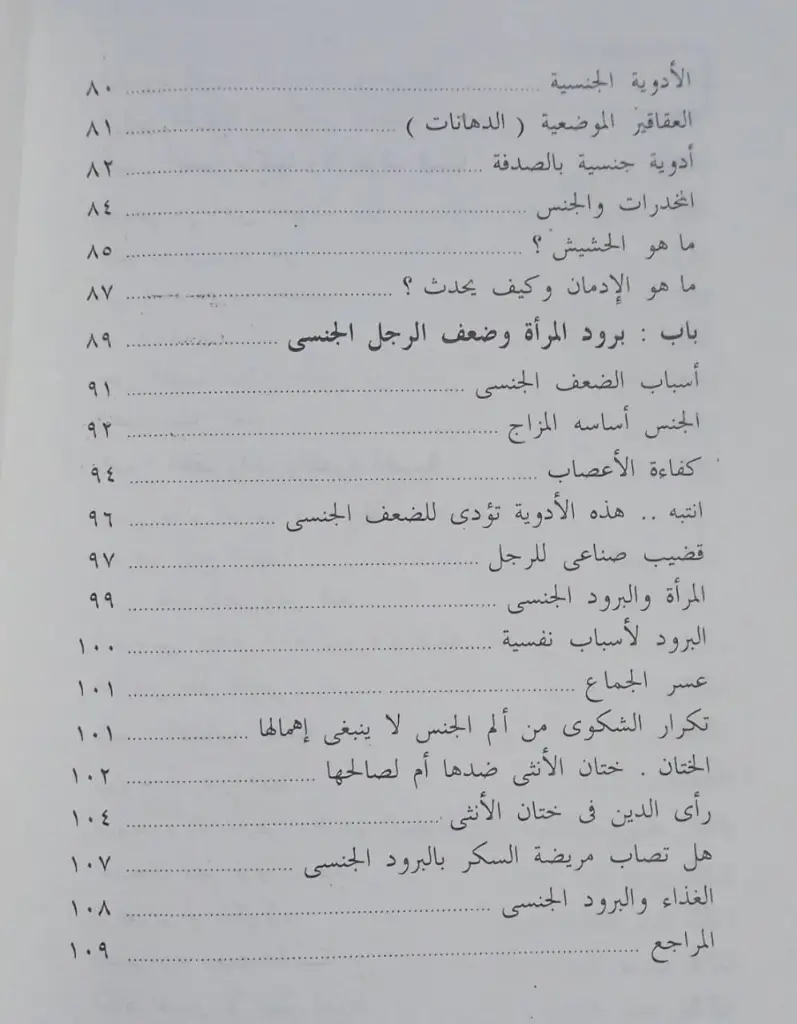 الأدوية الجنسية ........ ٨٠
العقاقير الموضعية ( الدهانات ) ........ ٨١
أدوية جنسية بالصدفة ........ ٨٢
المخدرات والجنس ........ ٨٤
ما هو الحشيش ؟ ........ ٨٥
ما هو الإدمان وكيف يحدث ؟ ........ ٨٧
باب : برود المرأة وضعف الرجل الجنسى ........ ٨٩
أسباب الضعف الجنسى ........ ٩١
الجنس أساسه المزاج ........ ٩٢
كفاءة الأعصاب ........ ٩٤
انتبه .. هذه الأدوية تؤدى للضعف الجنسى ........ ٩٦
قضيب صناعى للرجل ........ ٩٧
المرأة والبرود الجنسى ........ ٩٩
البرود لأسباب نفسية ........ ١٠٠
عسر الجماع ........ ١٠١
تكرار الشكوى من ألم الجنس لا ينبغى إهمالها ........ ١٠١
الختان . ختان الأنثى ضدها أم لصالحها ........ ١٠٢
رأى الدين فى ختان الأنثى ........ ١٠٤
هل تصاب مريضة السكر بالبرود الجنسى ........ ١٠٧
الغذاء والبرود الجنسى ........ ١٠٨
المراجع ........ ١٠٩